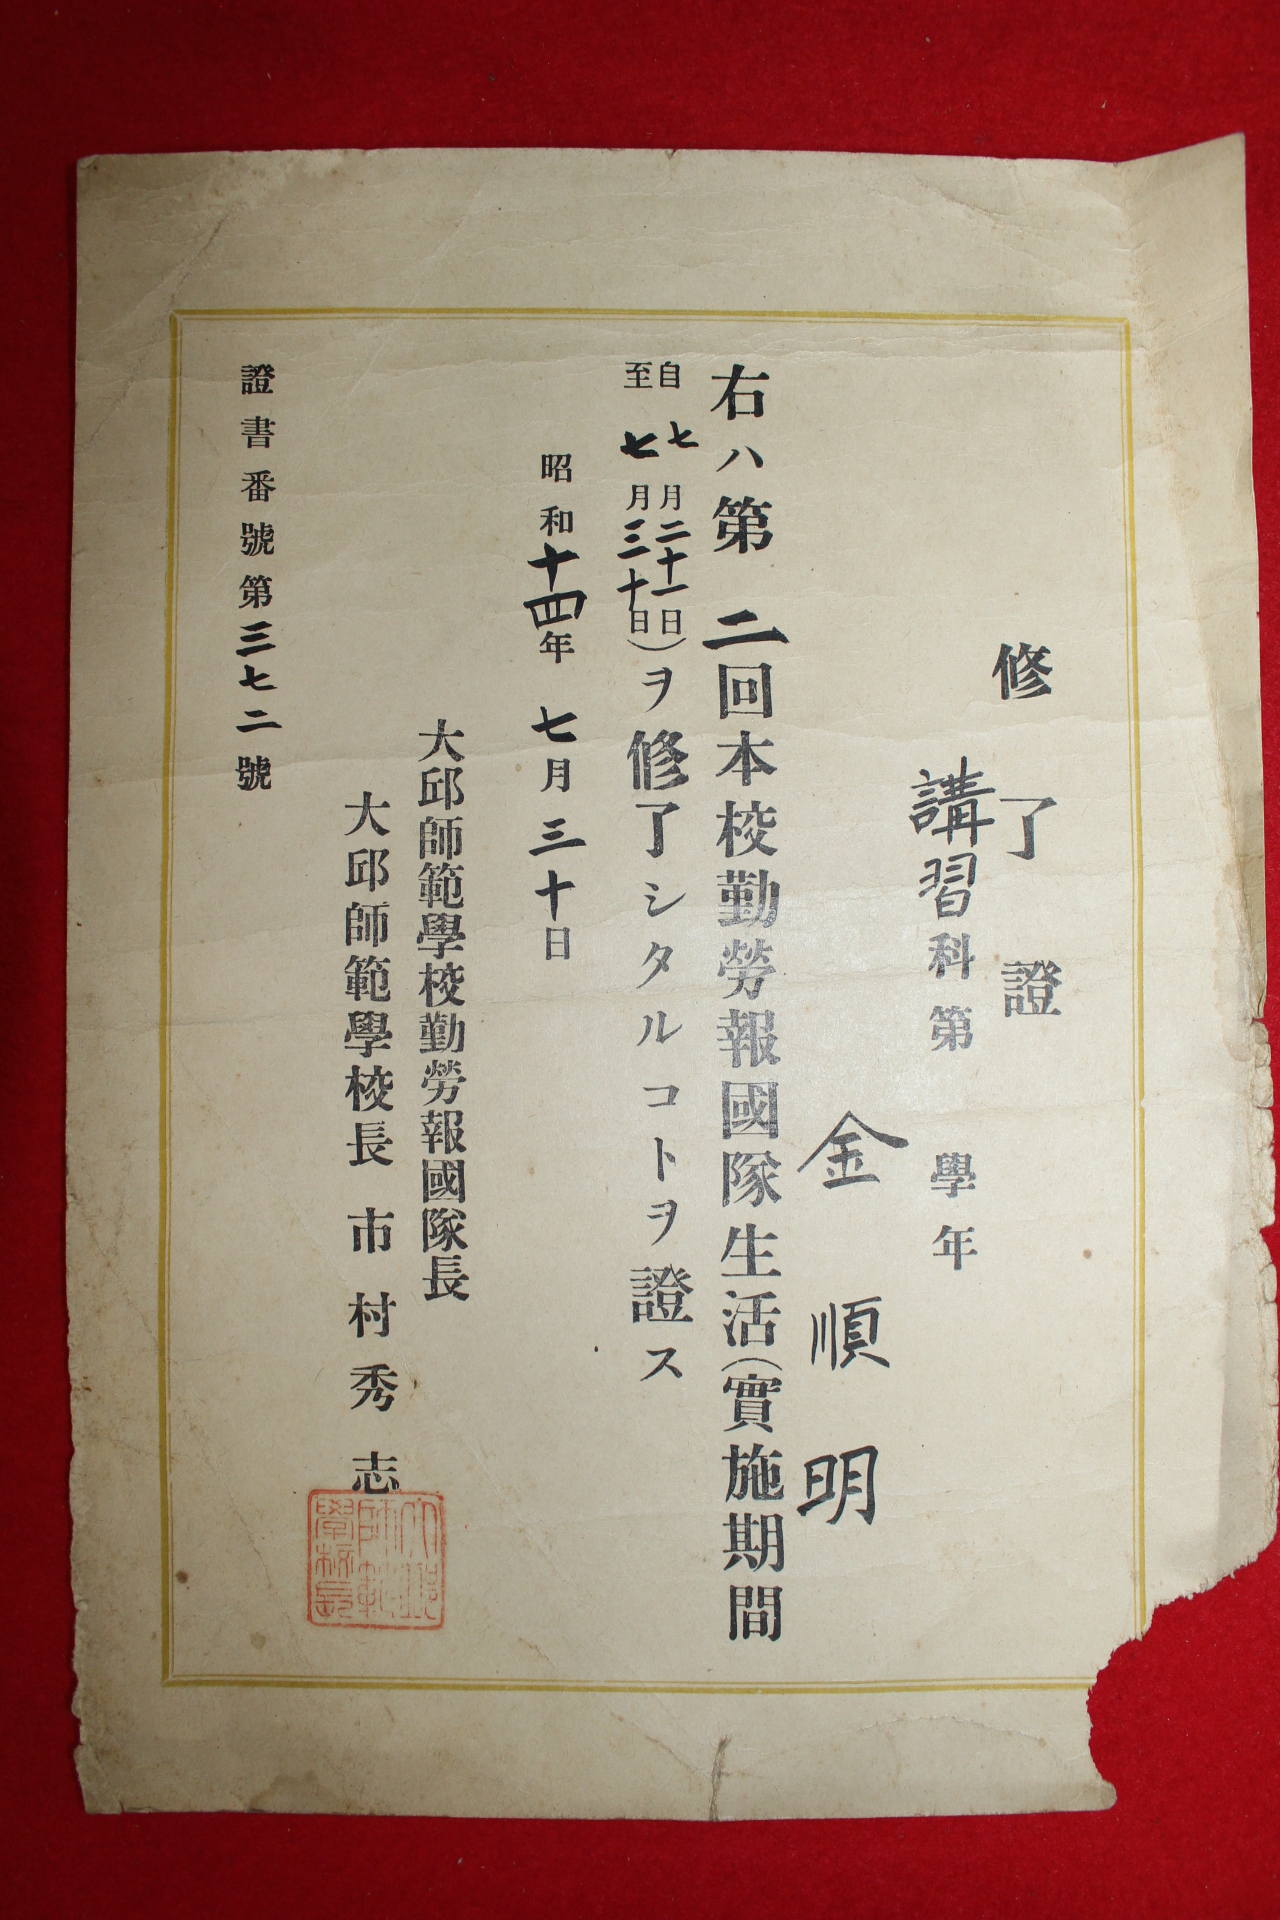 修了證
講習科第 學年
金順明
右ハ第二回本校勤勞報國隊生活(實施期間
自七月二十一日
至七月三十日)ヲ修了シタルコトヲ證ス
昭和十四年七月三十日
大邱師範學校勤勞報國隊長
大邱師範學校長市村秀志
大邱
師範
學校長
證書番號第三七二號